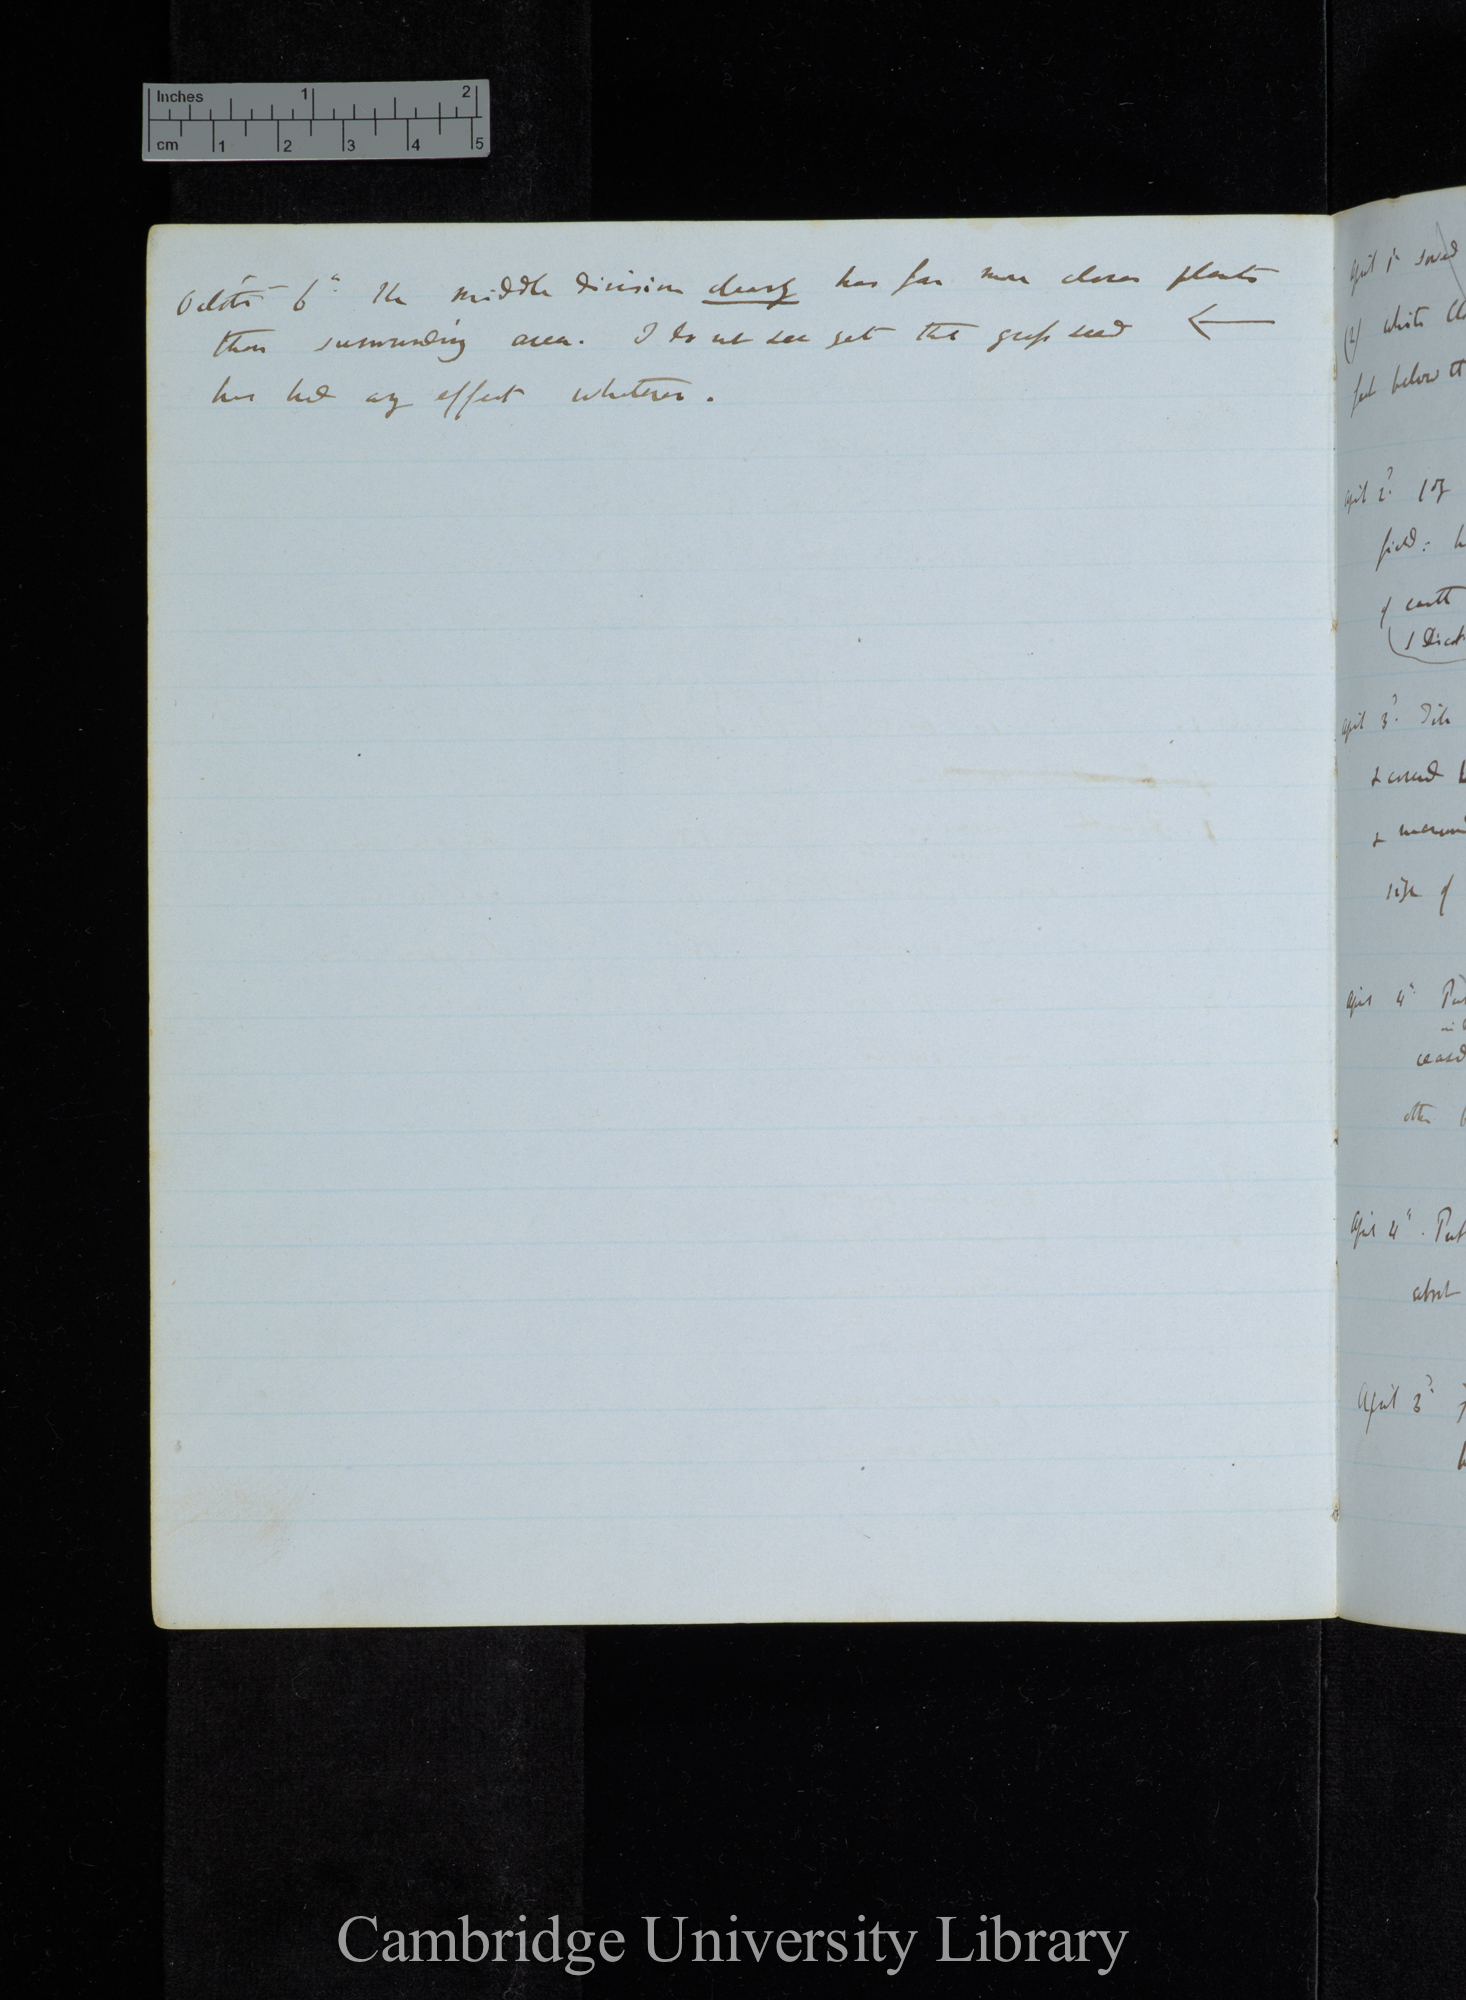 Inches 1 2
cm 1 2 3 4 5
October 6th The middle division clearly has far more clover plants
than surrounding area. I do not see yet that grass seed ←
has had any effect whatever.
April 1st sowed
(2) White
feet below
April 2d
field:
of earth
April 3d
& covered
&
size of
April 4th
ceased
other
April 4th. Put
April 3d
Cambridge University Library